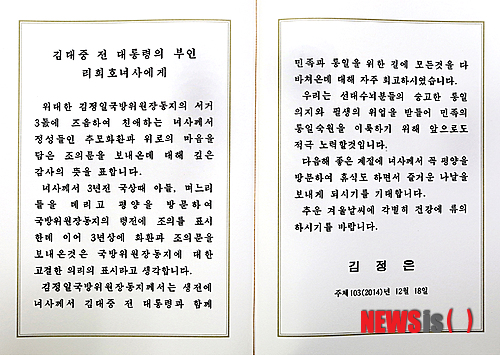 김대중 전 대통령의 부인
리희호녀사에게
위대한 김정일국방위원장동지의 서거
3돐에 즈음하여 친애하는 녀사께서
정성들인 추모화환과 위로의 마음을
담은 조의문을 보내온데 대해 깊은
감사의 뜻을 표합니다.
녀사께서 3년전 국상때 아들, 며느리
들을 데리고 평양을 방문하여
국방위원장동지의 령전에 조의를 표시
한데 이어 3년상에 화환과 조의문을
보내온것은 국방위원장동지에 대한
고결한 의리의 표시라고 생각합니다.
김정일국방위원장동지께서는 생전에
녀사께서 김대중 전 대통령과 함께
민족과 통일을 위한 길에 모든것을 다
바쳐온데 대해 자주 회고하시였습니다.
우리는 선대수뇌분들의 숭고한 통일
의지와 필생의 위업을 받들어 민족의
통일숙원을 이룩하기 위해 앞으로도
적극 노력할것입니다.
다음해 좋은 계절에 녀사께서 꼭 평양을
방문하여 휴식도 하면서 즐거운 나날을
보내게 되시기를 기대합니다.
추운 겨울날씨에 각별히 건강에 류의
하시기를 바랍니다.
김 정 은
주체103(2014)년 12월 18일
NEWSis( )